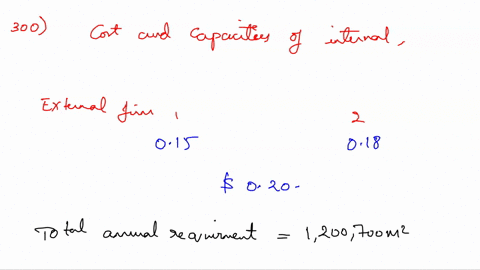 300) Cost and Capacities of internal,
External firm 1 2
0.15 0.18
$ 0.20.
Total annual requirment = 1,200,700m²